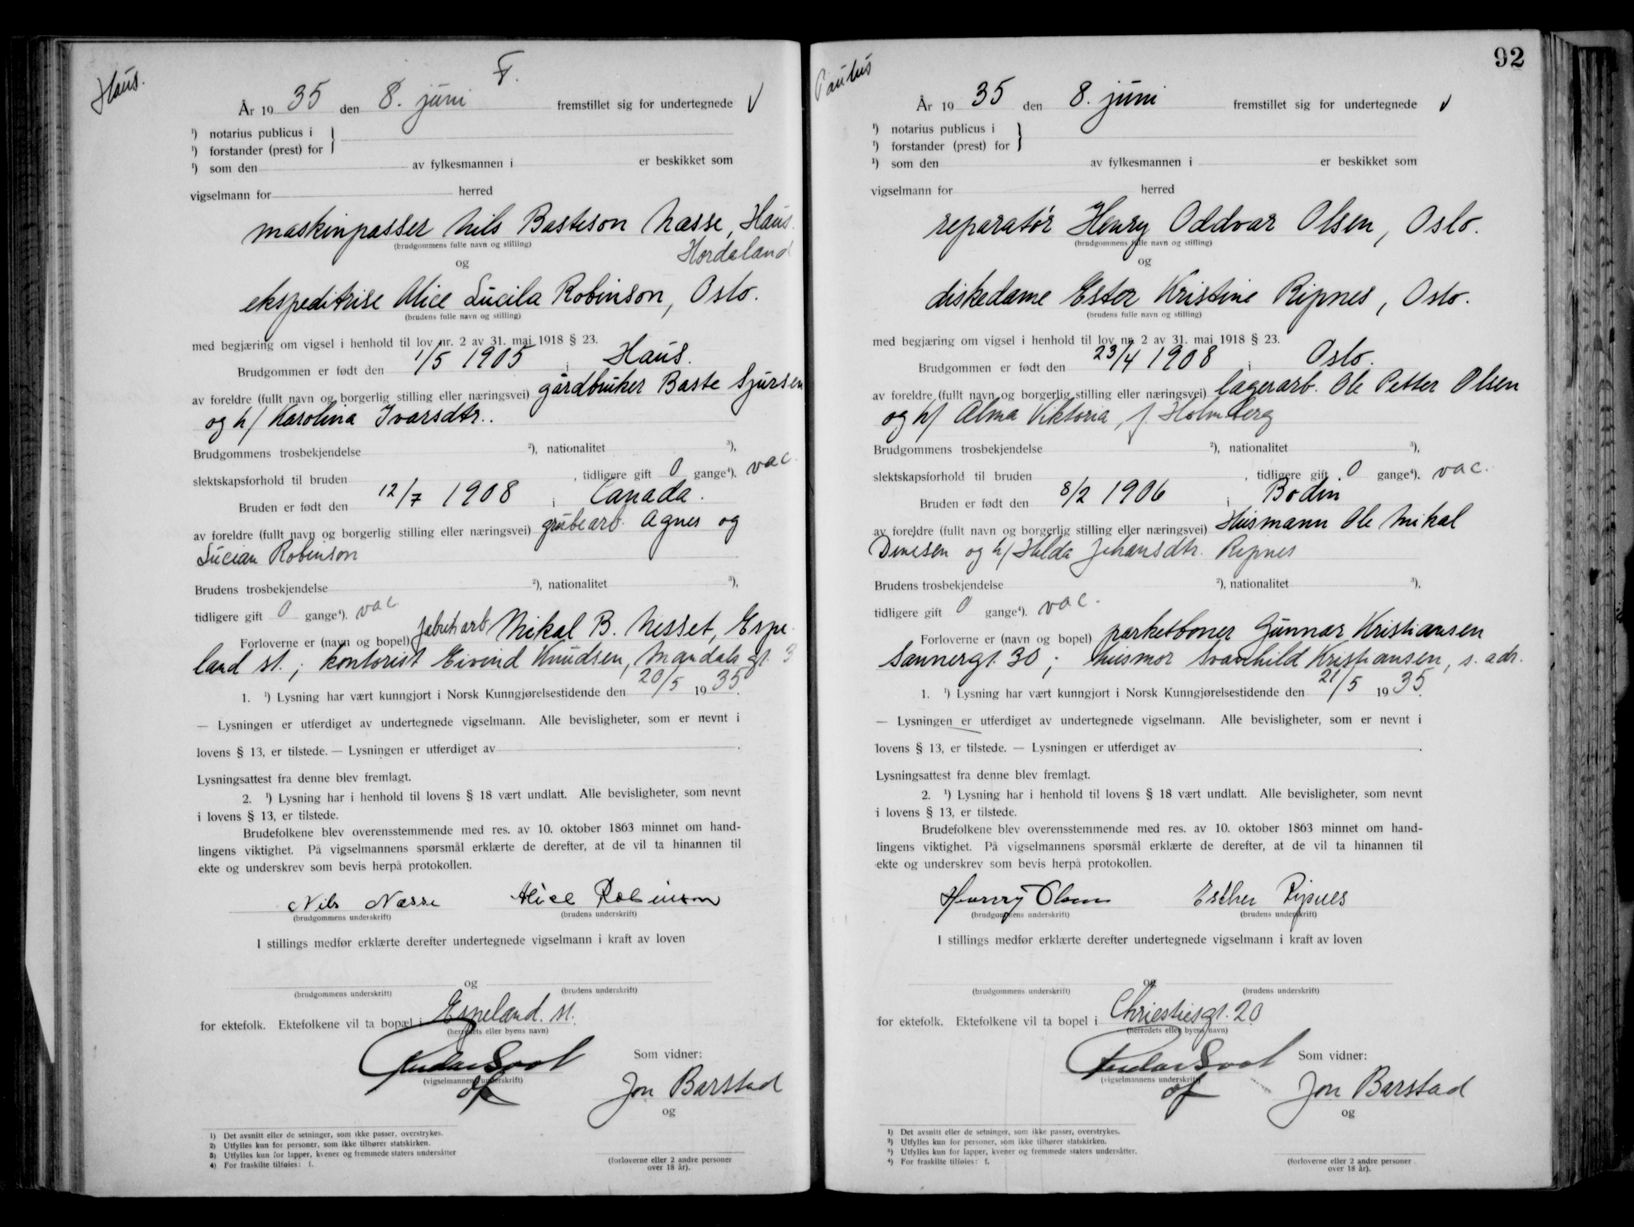 Haus.
År 19 35 den 8. juni fremstillet sig for undertegnede
¹) notarius publicus i
¹) forstander (prest) for
¹) som den av fylkesmannen i er beskikket som
vigselmann for herred
maskinpasser Nils Basteson Næsse, Haus.
(brudgommens fulle navn og stilling)
Hordaland
og
ekspeditrise Alice Lucila Robinson, Oslo.
(brudens fulle navn og stilling)
med begjæring om vigsel i henhold til lov nr. 2 av 31. mai 1918 § 23.
Brudgommen er født den 1/5 1905 i Haus.
av foreldre (fullt navn og borgerlig stilling eller næringsvei) gårdbruker Baste Sjursen
og h/ Karolina Ivarsdtr..
Brudgommens trosbekjendelse ²), nationalitet ³),
slektskapsforhold til bruden , tidligere gift 0 gange⁴). vac.
Bruden er født den 12/7 1908 i Canada.
av foreldre (fullt navn og borgerlig stilling eller næringsvei) grubearb. Agnes og
Lucian Robinson
Brudens trosbekjendelse ²), nationalitet ³),
tidligere gift 0 gange⁴). vac
Forloverne er (navn og bopel) fabrikarb Mikal B. Nesset, Espe
land st.; kontorist Eivind Knudsen, Mandals gt. 3
1. ¹) Lysning har vært kunngjort i Norsk Kunngjørelsestidende den 20/5 19 35.
— Lysningen er utferdiget av undertegnede vigselmann. Alle bevisligheter, som er nevnt i
lovens § 13, er tilstede. — Lysningen er utferdiget av .
Lysningsattest fra denne blev fremlagt.
2. ¹) Lysning har i henhold til lovens § 18 vært undlatt. Alle bevisligheter, som nevnt
i lovens § 13, er tilstede.
Brudefolkene blev overensstemmende med res. av 10. oktober 1863 minnet om hand-
lingens viktighet. På vigselmannens spørsmål erklærte de derefter, at de vil ta hinannen til
ekte og underskrev som bevis herpå protokollen.
Nils Næsse Alice Robinson
(brudgommens underskrift) (brudens underskrift)
I stillings medfør erklærte derefter undertegnede vigselmann i kraft av loven
og
(brudgommens underskrift) (brudens underskrift)
for ektefolk. Ektefolkene vil ta bopæl i Espeland. st.
(herredets eller byens navn)
Som vidner:
(vigselmannens underskrift)
Jon Barstad
og
1) Det avsnitt eller de setninger, som ikke passer, overstrykes.
2) Utfylles kun for personer, som ikke tilhører statskirken.
3) Utfylles kun for lapper, kvener og fremmede staters undersåtter
4) For fraskilte tilføies: f.
(forloverne eller 2 andre personer
over 18 år).
92
Paulus
År 19 35 den 8. juni fremstillet sig for undertegnede
¹) notarius publicus i
¹) forstander (prest) for
¹) som den av fylkesmannen i er beskikket som
vigselmann for herred
reparatør Henry Oddvar Olsen, Oslo.
(brudgommens fulle navn og stilling)
og
diskedame Ester Kristine Ripnes, Oslo.
(brudens fulle navn og stilling)
med begjæring om vigsel i henhold til lov nr. 2 av 31. mai 1918 § 23.
Brudgommen er født den 23/4 1908 i Oslo.
av foreldre (fullt navn og borgerlig stilling eller næringsvei) lagerarb. Ole Petter Olsen
og h/ Alma Viktoria, f. Holmberg
Brudgommens trosbekjendelse ²), nationalitet ³),
slektskapsforhold til bruden , tidligere gift 0 gange⁴). vac.
Bruden er født den 8/2 1906 i Bodin
av foreldre (fullt navn og borgerlig stilling eller næringsvei) Husmann Ole Mikal
Densen og h/ Hilda Johansdtr. Ripnes
Brudens trosbekjendelse ²), nationalitet ³),
tidligere gift 0 gange⁴). vac.
Forloverne er (navn og bopel) parketboner Gunnar Kristiansen
Sannergt. 30; husmor Svanhild Kristiansen, s. adr.
1. ¹) Lysning har vært kunngjort i Norsk Kunngjørelsestidende den 21/5 19 35.
— Lysningen er utferdiget av undertegnede vigselmann. Alle bevisligheter, som er nevnt i
lovens § 13, er tilstede. — Lysningen er utferdiget av .
Lysningsattest fra denne blev fremlagt.
2. ¹) Lysning har i henhold til lovens § 18 vært undlatt. Alle bevisligheter, som nevnt
i lovens § 13, er tilstede.
Brudefolkene blev overensstemmende med res. av 10. oktober 1863 minnet om hand-
lingens viktighet. På vigselmannens spørsmål erklærte de derefter, at de vil ta hinannen til
ekte og underskrev som bevis herpå protokollen.
Henry Olsen Esther Ripnes
(brudgommens underskrift) (brudens underskrift)
I stillings medfør erklærte derefter undertegnede vigselmann i kraft av loven
og
(brudgommens underskrift) (brudens underskrift)
for ektefolk. Ektefolkene vil ta bopel i Christiesgt. 20
(herredets eller byens navn)
Som vidner:
(vigselmannens underskrift)
Jon Barstad
og
1) Det avsnitt eller de setninger, som ikke passer, overstrykes.
2) Utfylles kun for personer, som ikke tilhører statskirken.
3) Utfylles kun for lapper, kvener og fremmede staters undersåtter.
4) For fraskilte tilføies: f.
(forloverne eller 2 andre personer
over 18 år).